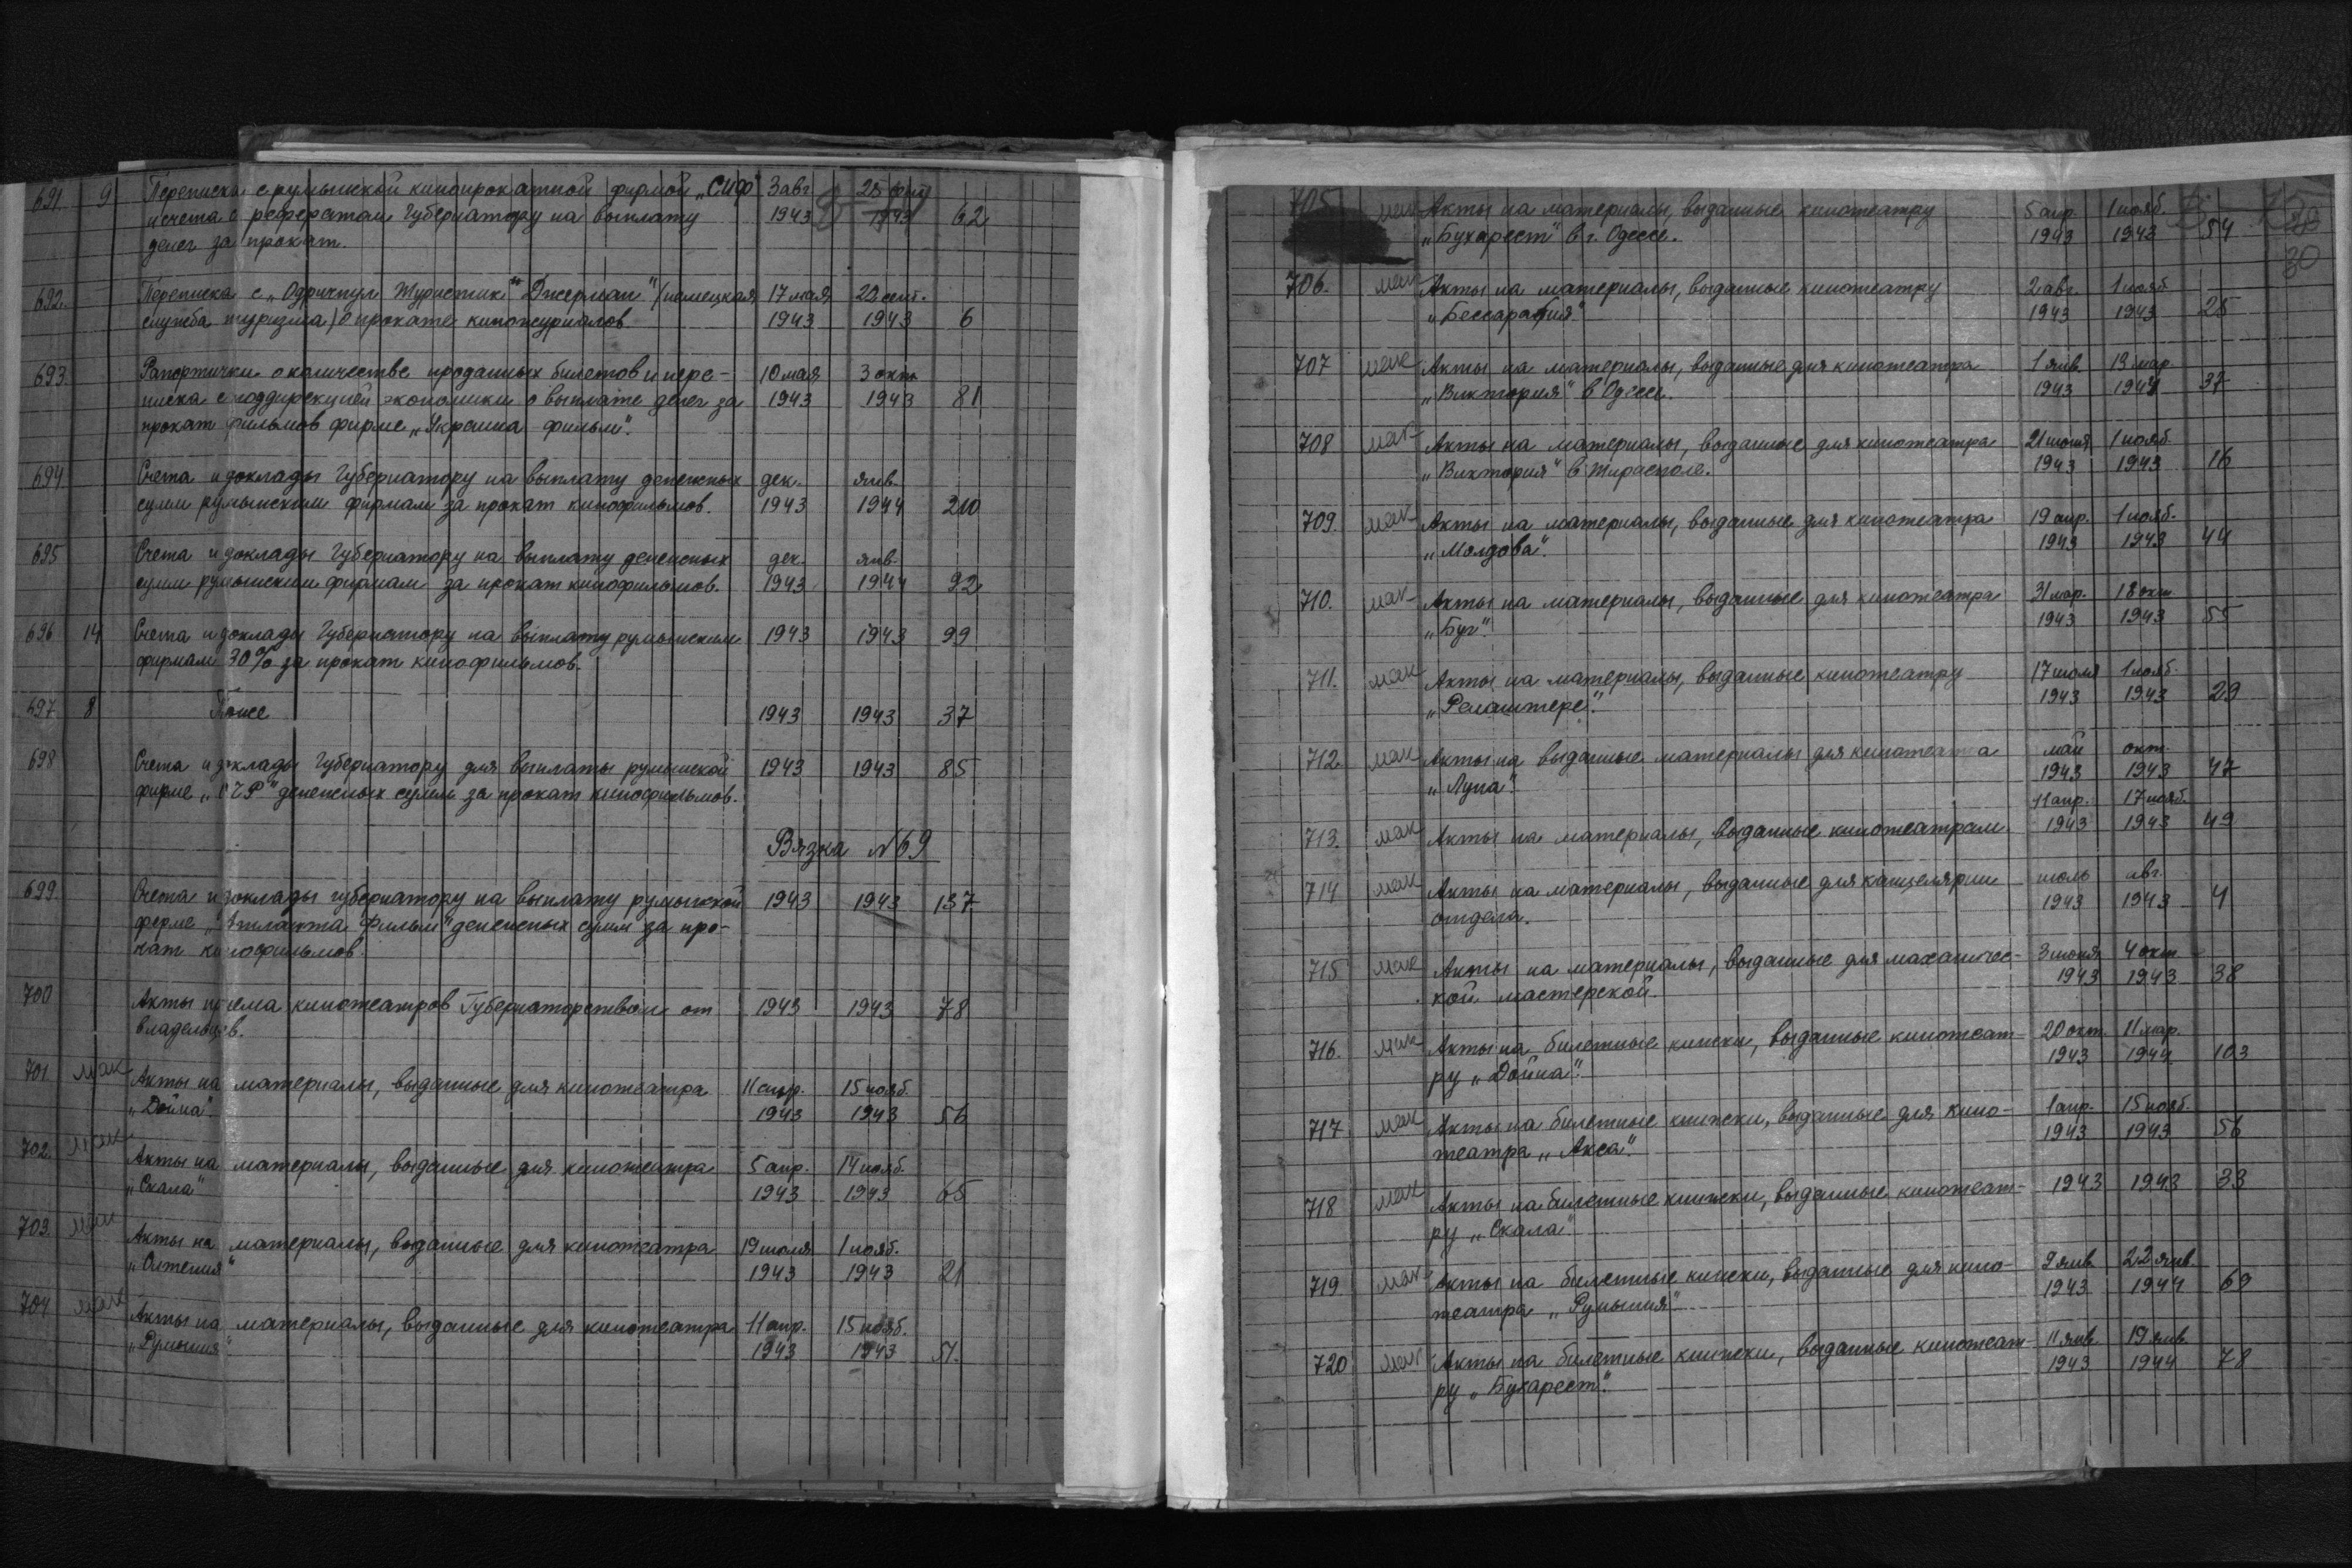 691 9 Переписка с румынской кинопрокатной фирмой „СИФ“ 3 авг. 25
и счета с рефератами Губернатору на выплату 1943 1943 62
денег за прокат.
692. Переписка с „Одричпул Туристик Джерман“ (немецкая 17 мая 22 сент.
служба туризма) о прокате киножурналов 1943 1943 6
693 Рапортички о количестве проданных билетов и пере- 10 мая 3 окт
писка с поддирекцией экономики о выплате денег за 1943 1943 81
прокат фильмов фирме „Украина фильм“.
694 Счета и доклады Губернатору на выплату денежных дек. янв.
сумм румынским фирмам за прокат кинофильмов. 1943 1944 210
695 Счета и доклады Губернатору на выплату денежных дек. янв.
сумм румынским фирмам за прокат кинофильмов. 1943 1944 92
696 14 Счета и доклады Губернатору на выплату румынским 1943 1943 99
фирмам 30% за прокат кинофильмов.
697 8 Тоже 1943 1943 37
698 Счета и доклады Губернатору для выплаты румынской 1943 1943 85
фирме денежных сумм за прокат кинофильмов.
Вязка №69
699. Счета и доклады губернатору на выплату румынской 1943 1943 137
фирме „Атланта Фильм“ денежных сумм за про-
кат кинофильмов.
700 Акты приема кинотеатров Губернаторством от 1943 1943 78
владельцев.
701 мак Акты на материалы, выданные для кинотеатра 11 апр. 15 нояб.
„Дойна“. 1943 1943 56
702 мак Акты на материалы, выданные для кинотеатра 5 апр. 14 нояб.
„Скала“ 1943 1943 65
703. мак Акты на материалы, выданные для кинотеатра 19 июля 1 нояб.
„Олтения“ 1943 1943 21
704 мак Акты на материалы, выданные для кинотеатра 11 апр. 15 нояб.
„Румыния“ 1943 1943 51.
705 мак Акты на материалы, выданные кинотеатру 5 апр. 1 нояб.
„Бухарест“ в г. Одессе. 1943 1943 54
30
706. мак Акты на материалы, выданные кинотеатру 2 авг. 1 нояб
„Бессарабия“. 1943 1943 25
707 мак Акты на материалы, выданные для кинотеатра 1 янв. 13 мар.
„Виктория“ в Одессе. 1943 1944 37
708 мак Акты на материалы, выданные для кинотеатра 21 июня 1 нояб.
„Виктория“ в Тирасполе. 1943 1943 16
709. мак Акты на материалы, выданные для кинотеатра 19 апр. 1 нояб.
„Молдова“. 1943 1943 44
710. мак Акты на материалы, выданные для кинотеатра 31 мар. 18 окт
„Буг“. 1943 1943 55
711. мак Акты на материалы, выданные кинотеатру 17 июля 1 нояб.
„Реваштере“. 1943 1943 29
712. мак Акты на выданные материалы для кинотеатра май окт.
„Луна“. 1943 1943 47
11 апр. 17 нояб.
713. мак Акты на материалы, выданные кинотеатрам. 1943 1943 49
714 мак Акты на материалы, выданные для канцелярии июль авг.
отдела. 1943 1943 4
715 мак Акты на материалы, выданные для механичес- 3 июня 4 окт
кой мастерской. 1943 1943 38
716. мак Акты на билетные книжки, выданные кинотеат- 20 окт. 11 мар.
ру „Дойна“. 1943 1944 103
717 мак Акты на билетные книжки, выданные для кино- 1 апр. 15 нояб.
театра „Акса“. 1943 1943 56
718 мак Акты на билетные книжки, выданные кинотеат- 1943 1943 33
ру „Скала“.
719. мак Акты на билетные книжки, выданные для кино- 9 янв. 22 янв
театра „Румыния“ 1943 1944 69
720 мак Акты на билетные книжки, выданные кинотеат- 11 янв. 19 янв.
ру „Бухарест“. 1943 1944 78